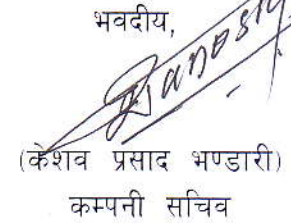 भवदीय,
(केशव प्रसाद भण्डारी)
कम्पनी सचिव